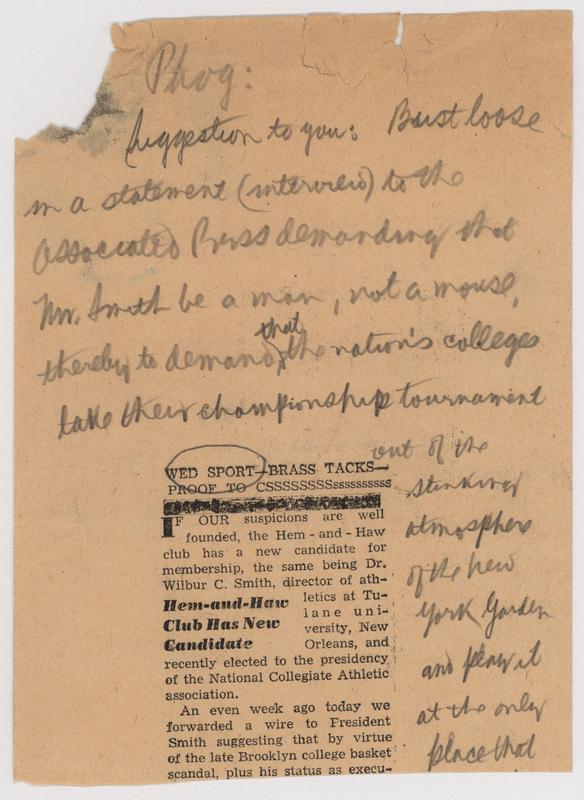 Phog:
Suggestion to you: Bust loose
in a statement (interview) to the
Associated Press demanding that
Mr. Smith be a man, not a mouse,
that
thereby to demand the nation's colleges
take their championship tournament
out of the
stinking
atmosphere
of the New
York Garden
and play it
at the only
place that
WED SPORT—BRASS TACKS—
PROOF TO CSSSSSSSSssssssssss
IF OUR suspicions are well
founded, the Hem-and-Haw
club has a new candidate for
membership, the same being Dr.
Wilbur C. Smith, director of ath-
Hem-and-Haw
Club Has New
Candidate
letics at Tu-
lane uni-
versity, New
Orleans, and
recently elected to the presidency
of the National Collegiate Athletic
association.
An even week ago today we
forwarded a wire to Fresident
Smith suggesting that by virtue
of the late Brooklyn college basket
scandal, plus his status as execu-